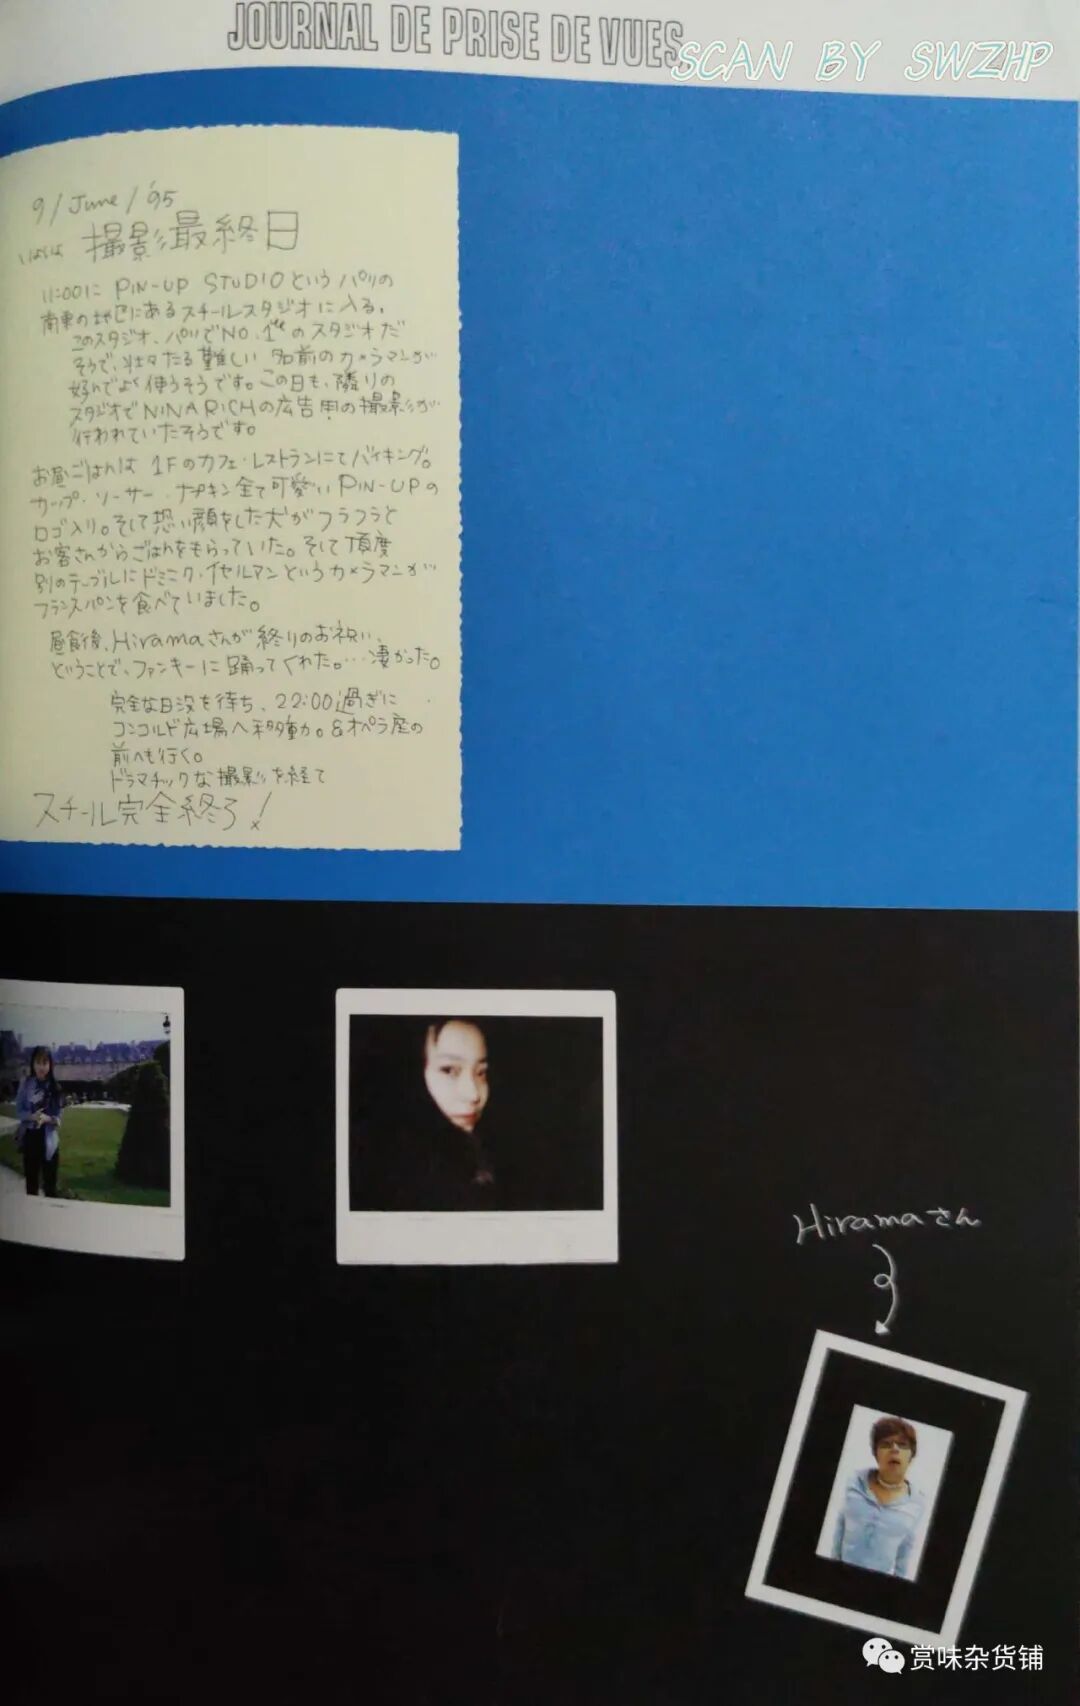 JOURNAL DE PRISE DE VUES
SCAN BY SWZHP
9/June/'95
いよいよ 撮影最終日
11:00に PIN-UP STUDIOという パリの
南東の地区にあるスチールスタジオに入る。
このスタジオ、パリでNO.1のスタジオだ
そうで、壮々たる難しい 名前のカメラマンが
好んでよく使うそうです。この日も、隣りの
スタジオでNINA RICHの広告用の撮影が
行われていたそうです。
お昼ごはんは 1Fのカフェ・レストランにてバイキング。
カップ・ソーサー・ナプキン全て可愛いPIN-UPの
ロゴ入り。そして恐い顔をした犬がフラフラと
お客さんからごはんをもらっていた。そして頂度
別のテーブルにドミニク・イセルマンというカメラマンが
フランスパンを食べていました。
昼食後、Hiramaさんが終りのお祝い、
ということで、ファンキーに踊ってくれた。…凄かった。
完全な日没を待ち、22:00過ぎに
コンコルド広場へ移動。&オペラ座の
前へも行く。
ドラマチックな撮影を経て
スチール完全終了!
Hiramaさん
赏味杂货铺